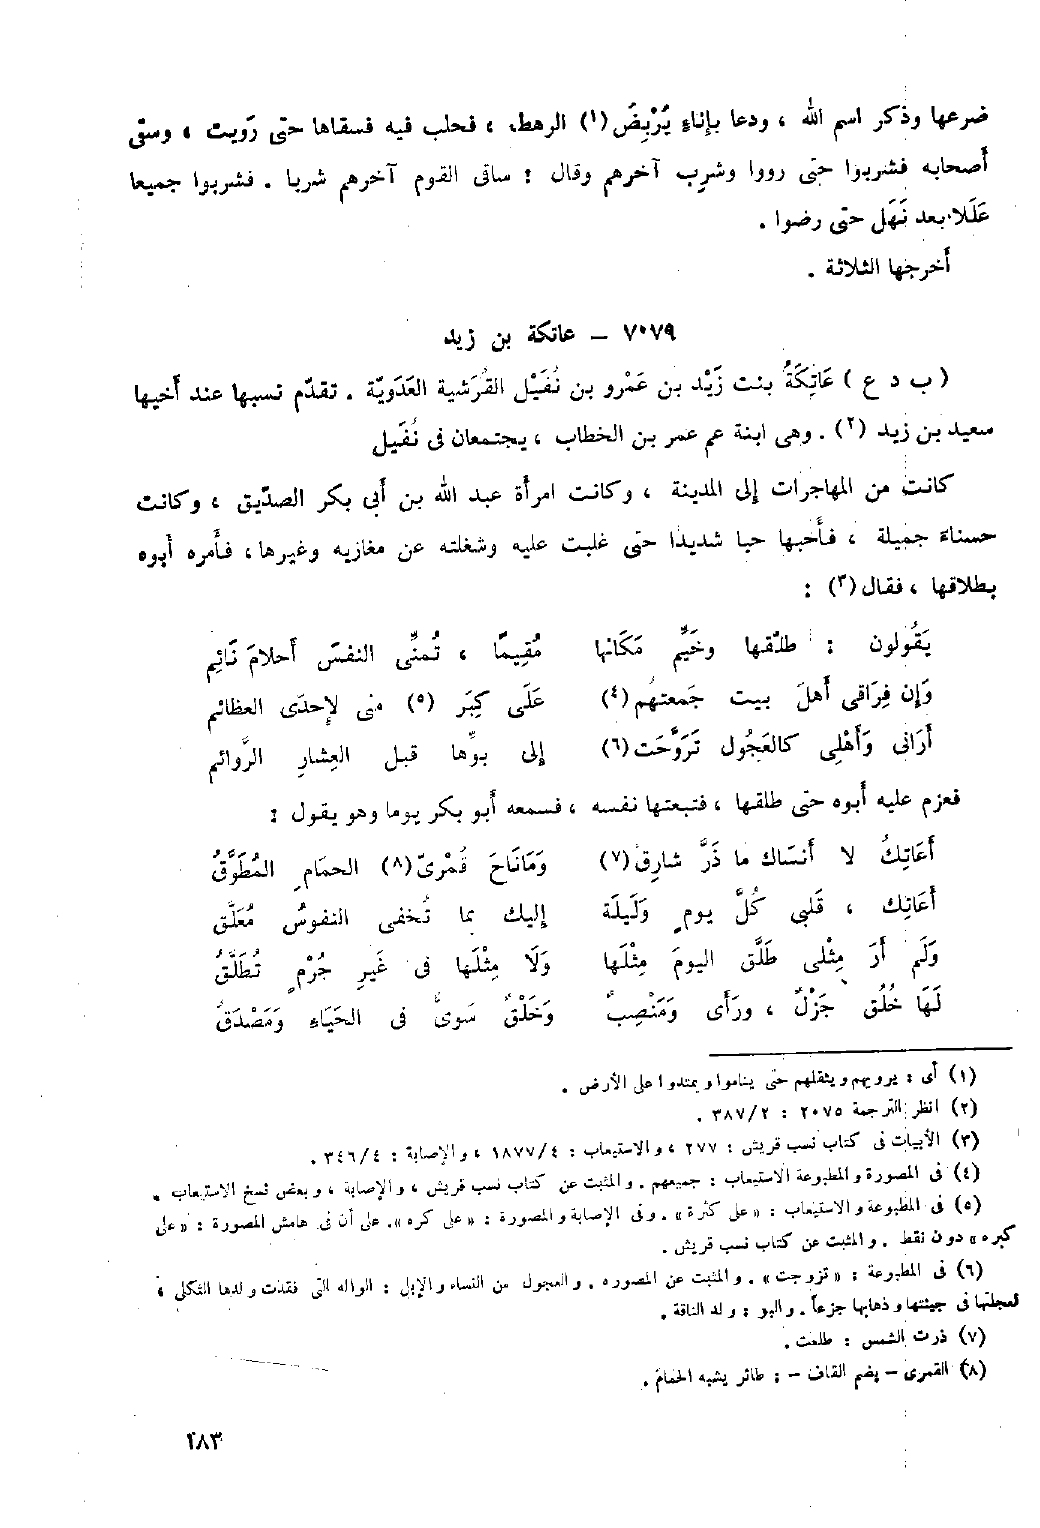 ضرعها وذكر اسم الله ، ودعا بإناءٍ يُرْبِضُ (١) الرهط ، فحلب فيه فسقاها حتى رَوِيت ، وسقى
أصحابه فشربوا حتى رووا وشرِب آخرهم وقال : ساقى القوم آخرهم شربا . فشربوا جميعا
عَلَلا بعد نَهَل حتى رضوا .
أخرجها الثلاثة .
٧٠٧٩ – عاتكة بن زيد
( ب د ع ) عَاتِكَةُ بنت زَيْد بن عَمْرو بن نُفَيْل القُرَشية العَدَوِيّة . تقدّم نسبها عند أخيها
سعيد بن زيد (٢) . وهى ابنة عم عمر بن الخطاب ، يجتمعان فى نُفَيل
كانت من المهاجرات إلى المدينة ، وكانت امرأة عبد الله بن أبى بكر الصدّيق ، وكانت
حسناءَ جميلة ، فأَحبها حبا شديدا حتى غلبت عليه وشغلته عن مغازيه وغيرها ، فأمره أبوه
بطلاقها ، فقال (٣) :
يَقُولون : طلّقها وخَيِّم مَكَانها مُقِيمًا ، تُمنِّى النفسَ أحلامَ نَائِم
وَإن فِرَاقى أهلَ بيت جَمعتهُم (٤) عَلَى كِبَر (٥) منى لإحدَى العظائم
أرَانى وَأهْلِى كالعَجُول تَرَوَّحَت (٦) إلى بوِّها قبل العِشارِ الرَّوائم
فعزم عليه أبوه حتى طلقها ، فتبعتها نفسه ، فسمعه أبو بكر يوما وهو يقول :
أعَاتِكُ لا أنسَاك ما ذَرَّ شارِق (٧) وَمَانَاحَ قُمْرىّ (٨) الحمَامِ المُطَوَّقُ
أعَاتِك ، قَلبِي كُلَّ يومٍ وَلَيلَة إليك بما تُخفى النفوسُ مُعَلَّق
وَلَم أرَ مِثْلى طَلَّق اليومَ مِثْلَها وَلَا مِثْلَها فى غَيرِ جُرْمٍ تُطَلَّقُ
لَهَا خُلُق جَزْلٌ ، ورَأى وَمَنْصِبٌ وَخَلْقٌ سَوىٌّ فى الحَيَاءِ وَمَصْدَقُ
(١) أى : يرويهم ويثقلهم حتى يناموا ويمتدوا على الأرض .
(٢) انظر الترجمة ٢٠٧٥ : ٣٨٧/٢ .
(٣) الأبيات فى كتاب نسب قريش : ٢٧٧ ، والاستيعاب : ١٨٧٧/٤ ، والإصابة : ٣٤٦/٤ .
(٤) فى المصورة والمطبوعة الاستيعاب : جميعهم . والمثبت عن كتاب نسب قريش ، والإصابة ، وبعض نسخ الاستيعاب .
(٥) فى المطبوعة والاستيعاب : «على كثرة» . وفى الإصابة والمصورة : «على كره». على أن فى هامش المصورة : «على
كبره» دون نقط . والمثبت عن كتاب نسب قريش .
(٦) فى المطبوعة : «تزوجت» . والمثبت عن المصوره . والعجول من النساء والإبل : الواله التى فقدت ولدها الثكلى ،
لعجلتها فى جيئتها وذهابها جزعاً . والبو : ولد الناقة .
(٧) ذرت الشمس : طلعت .
(٨) القمرى – بضم القاف – : طائر يشبه الحمام .
٢٨٣